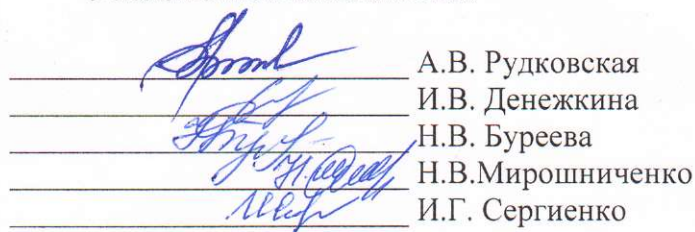 А.В. Рудковская
И.В. Денежкина
Н.В. Буреева
Н.В.Мирошниченко
И.Г. Сергиенко